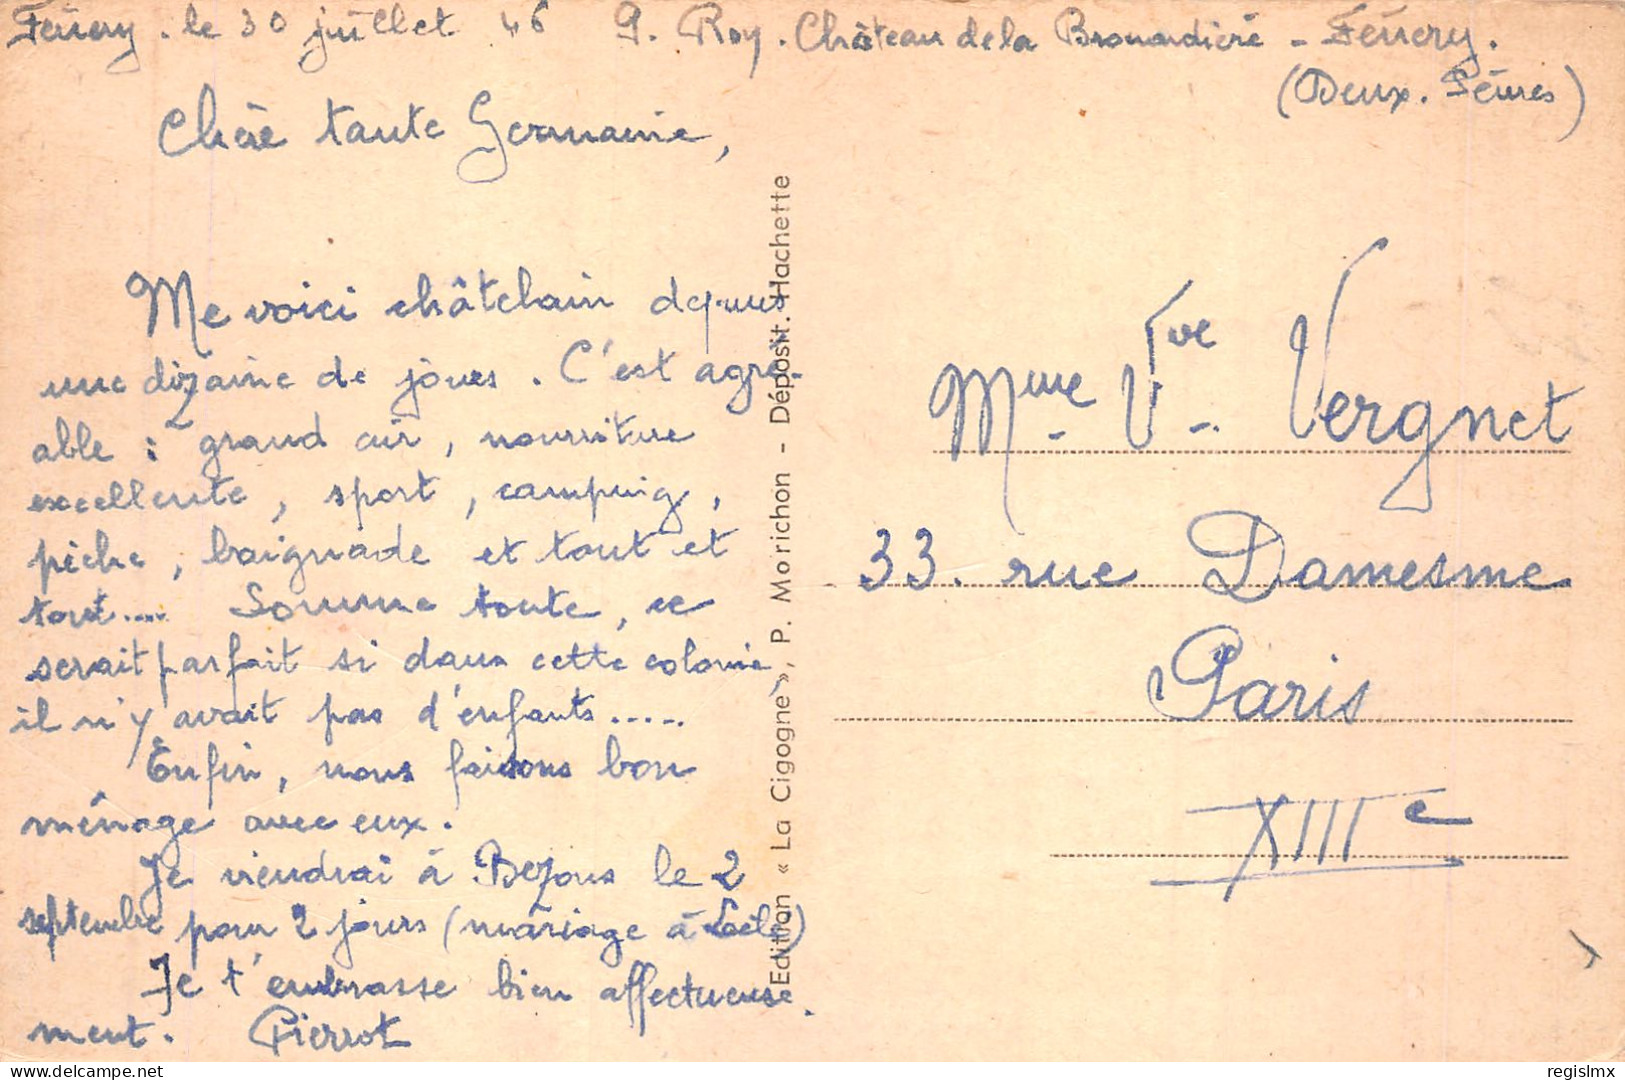 Fénery. le 30 juillet 46 P. Roy. Château de la Brouardière - Fénery.
(Deux. Sèvres)
Chère tante Germaine,
Me voici châtelain depuis
une dizaine de jours. C'est agré-
able : grand air, nourriture
excellente, sport, camping,
pêche, baignade et tout et
tout.... Somme toute, ce
serait parfait si dans cette colonie,
il n'y avait pas d'enfants.....
Enfin, nous faisons bon
ménage avec eux.
Je viendrai à Bezons le 2
septembre pour 2 jours (mariage à
Je t'embrasse bien affectueuse
ment. Pierrot
Edition « La Cigogne », P. Morichon - Déposit. Hachette
Mme Vve Vergnet
33. rue Damesme
Paris
XIIIe
regislmx
delcampe.net